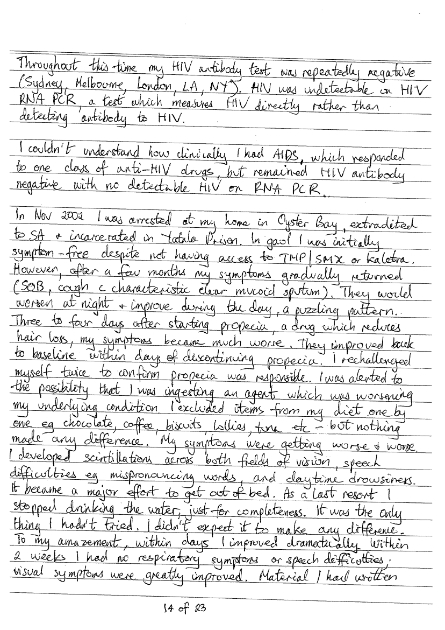 Throughout this time my HIV antibody test was repeatedly negative
(Sydney, Melbourne, London, LA, NY). HIV was undetectable on HIV
RNA PCR, a test which measures HIV directly rather than
detecting antibody to HIV.
I couldn't understand how clinically I had AIDS, which responded
to one class of anti-HIV drugs, but remained HIV antibody
negative with no detectable HIV on RNA PCR.
In Nov 2002 I was arrested at my home in Oyster Bay, extradited
to SA + incarcerated in Yatala Prison. In gaol I was initially
symptom-free despite not having access to TMP/SMX or kaletra.
However, after a few months my symptoms gradually returned
(SOB, cough c characteristic clear mucoid sputum). They would
worsen at night + improve during the day, a puzzling pattern.
Three to four days after starting propecia, a drug which reduces
hair loss, my symptoms became much worse. They improved back
to baseline within days of discontinuing propecia. I rechallenged
myself twice to confirm propecia was responsible. I was alerted to
the possibility that I was ingesting an agent which was worsening
my underlying condition. I excluded items from my diet one by
one eg chocolate, coffee, biscuits, lollies, tuna, etc - but nothing
made any difference. My symptoms were getting worse + worse.
I developed scintillations across both fields of vision, speech
difficulties eg mispronouncing words, and daytime drowsiness.
It became a major effort to get out of bed. As a last resort I
stopped drinking the water, just for completeness. It was the only
thing I hadn't tried. I didn't expect it to make any difference.
To my amazement, within days I improved dramatically. Within
2 weeks I had no respiratory symptoms or speech difficulties;
visual symptoms were greatly improved. Material I had written
14 of 23